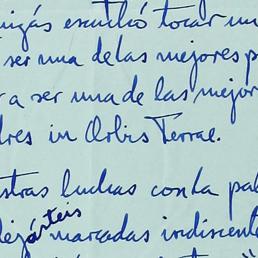 escuchó tocar un
ser una de las mejores p
a ser una de las mejor
dres in Orbis Terrae.
stras luchas con la pal
árteis
lejá marcadas indiscente